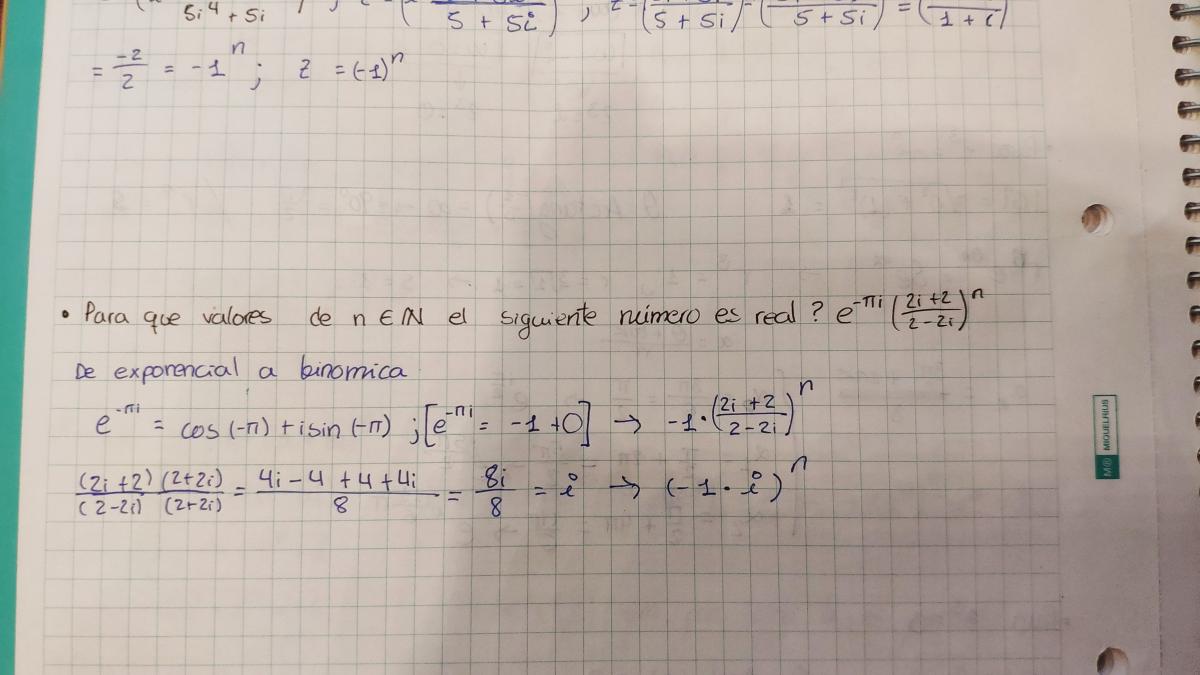 5i⁴ + 5i ; 5 + 5i ) ; 5 + 5i ) - ( 5 + 5i ) = ( 1 + i )
= -2/2 = -1ⁿ ; z = (-1)ⁿ
• Para que valores de n ∈ ℕ el siguiente número es real? e^-πi (2i+2 / 2-2i)ⁿ
De exponencial a binomica
e^-πi = cos(-π) + i sin(-π) ; [e^-πi = -1 + 0] → -1 · (2i+2 / 2-2i)ⁿ
(2i+2)(2+2i) / (2-2i)(2+2i) = 4i - 4 + 4 + 4i / 8 = 8i / 8 = i → (-1 · i)ⁿ
M MIQUELRIUS